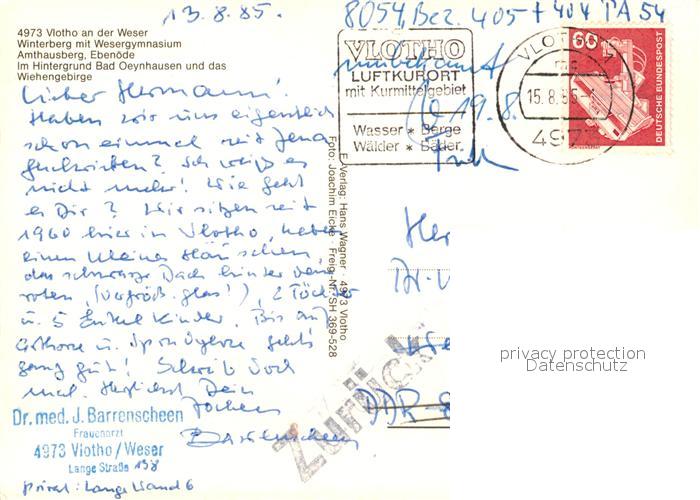 13.8.85.
8054, Bez. 405 + 404 PA 54
4973 Vlotho an der Weser
Winterberg mit Wesergymnasium
Amthausberg, Ebenöde
Im Hintergrund Bad Oeynhausen und das
Wiehengebirge
VLOTHO
LUFTKURORT
mit Kurmittelgebiet
Wasser * Berge
Wälder * Bäder
VLOTHO 1
15.8.85
4973
60
DEUTSCHE BUNDESPOST
unbekannt
19.8.
Lieber Hermann!
Haben wir uns eigentlich
schon einmal seit Jena
geschrieben? Ich weiß es
nicht mehr! Wie geht
es Dir? Wir sitzen seit
1960 hier in Vlotho, neben
einem kleinen Häuschen,
das schwarze Dach hinter dem
roten, (Vergröß.glas!), 2 Töchter
u. 5 Enkelkinder. Bis auf
Arthrose u. Spondylose geht's
ganz gut! Schreib doch
mal. Herzlichst Dein
Jochen
Barrenscheen
Verlag: Hans Wagner · 4973 Vlotho
Foto: Joachim Eicke · Freig.-Nr. SH 369-528
Dr. med. J. Barrenscheen
Frauenarzt
4973 Vlotho/Weser
Lange Straße 138
Privat: Lange Wand 6
Zurück
Her
DDR
privacy protection
Datenschutz